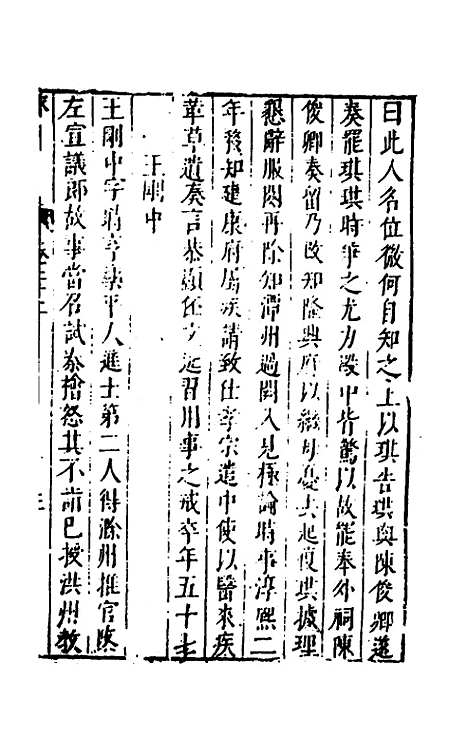 曰此人名位微何自知之上以琪告珙與陳俊卿遂
奏罷琪琪時事之尤力殿中皆驚以故罷奉外祠陳
俊卿奏留乃改知隆興府以繼母憂去起復珙據理
懇辭服闋再除知潭州過闕入見極論時事淳熙二
年移知建康府屬疾請致仕孝宗遣中使以醫來疾
革草遺奏言恭顯伾文近習用事之戒卒年五十七
王剛中
王剛中字時亨樂平人進士第二人得滁州推官
左宣議郎故事當召試秦檜怒其不詣已授洪州教